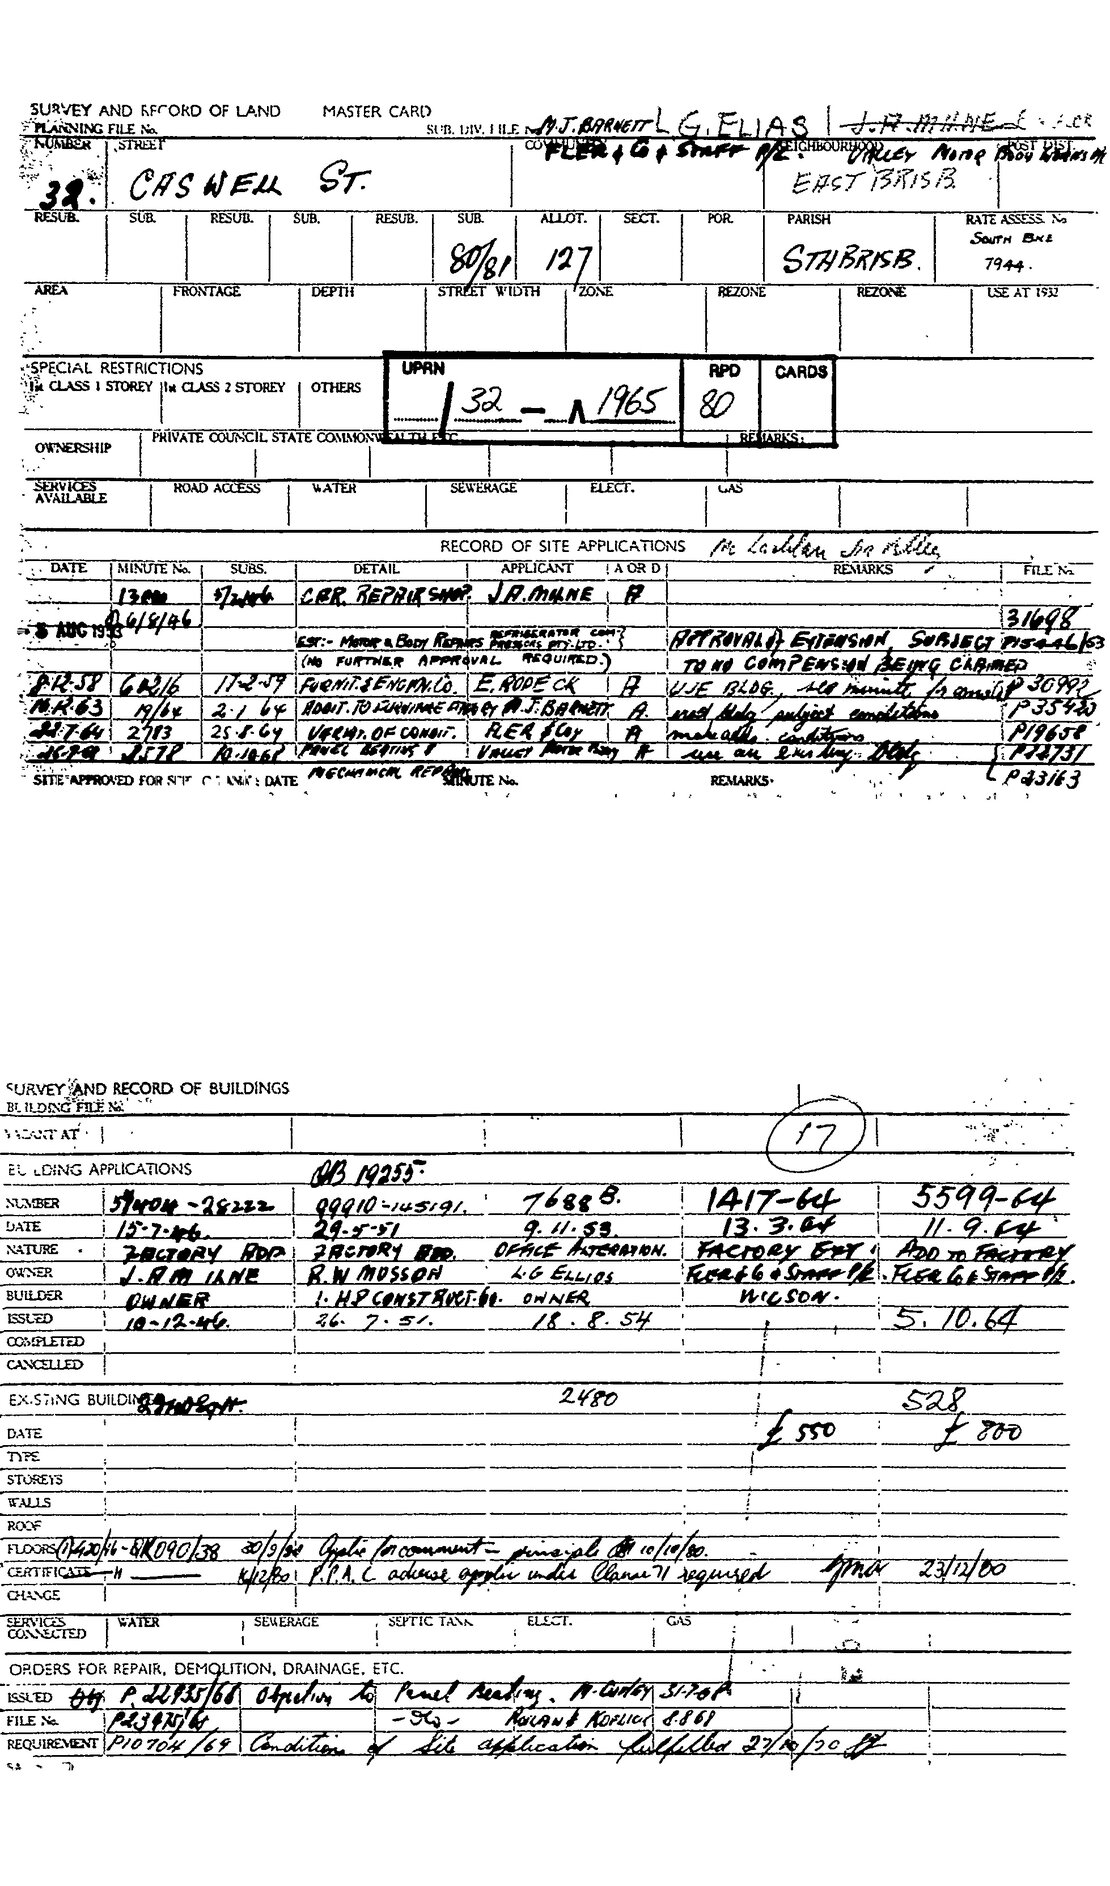 SURVEY AND RECORD OF LAND MASTER CARD
PLANNING FILE No. SUB. DIV. FILE No. M.J. BARNETT G. ELIAS J. A. MILNE
NUMBER STREET COMMUNITY FLER & Co & STAFF P/L. NEIGHBOURHOOD VALLEY MOTOR BODY WORKS POST DIST.
32. CASWELL ST. EAST BRISB.
RESUB. SUB. RESUB. SUB. RESUB. SUB. ALLOT. SECT. POR. PARISH RATE ASSESS. No
80/81 127 STH BRISB. SOUTH BNE
7944.
AREA FRONTAGE DEPTH STREET WIDTH ZONE REZONE REZONE USE AT 1932
SPECIAL RESTRICTIONS UPRN RPD CARDS
CLASS 1 STOREY CLASS 2 STOREY OTHERS / 32 – 1965 80
OWNERSHIP PRIVATE COUNCIL STATE COMMONWEALTH ETC. REMARKS:
SERVICES AVAILABLE ROAD ACCESS WATER SEWERAGE ELECT. GAS
RECORD OF SITE APPLICATIONS
DATE MINUTE No. SUBS. DETAIL APPLICANT A OR D REMARKS FILE No.
5/2/46 CAR REPAIR SHOP. J.A. MILNE A
6/8/46 31698
AUG 1953 EXT:- MOTOR & BODY REPAIRS REFRIGERATOR COM PRESSORS PTY. LTD. APPROVAL OF EXTENSION, SUBJECT P15446/53
(NO FURTHER APPROVAL REQUIRED.) TO NO COMPENSION BEING CLAIMED
8-12-58 17-2-59 FURNIT. & ENGIN. CO. E. RODECK A USE BLDG., see minute for P30992
63 19/64 2-1-64 ADDIT. TO FURNITURE FACTORY M.J. BARNETT A. erect bldg subject conditions P35420
22-7-64 2783 25-8-64 VARTN. OF CONDIT. FLER & COY A conditions P19658
2578 10-10-68 PANEL BEATING & VALLEY MOTOR BODY A use an existing bldg P22731
SITE APPROVED FOR DATE MECHANICAL REPAIRS MINUTE No. REMARKS: P23163
SURVEY AND RECORD OF BUILDINGS
BUILDING FILE No.
VACANT AT 17
BUILDING APPLICATIONS 19255
NUMBER 28222 99910-145191. 7688 B. 1417-64 5599-64
DATE 15-7-46. 29-5-51 9.11.53 13.3.64 11.9.64
NATURE FACTORY ADD FACTORY ADD. OFFICE ALTERATION. FACTORY EXT. ADD TO FACTORY
OWNER J. A MILNE R.W MOSSON L.G ELLIOS FLER & Co & STAFF P/L FLER Co & STAFF P/L.
BUILDER OWNER H P CONSTRUCT. Co. OWNER WILSON.
ISSUED 10-12-46. 26.7.51. 18.8.54 5.10.64
COMPLETED
CANCELLED
EXISTING BUILDING 2480 528
DATE £ 550 £ 800
TYPE
STOREYS
WALLS
ROOF
FLOORS 30/9/80 Applic for comment – principle 10/10/80.
CERTIFICATE 16/12/80 P.P.A.C advise applic under Clause 71 required 23/12/80
CHANGE
SERVICES CONNECTED WATER SEWERAGE SEPTIC TANK ELECT. GAS
ORDERS FOR REPAIR, DEMOLITION, DRAINAGE, ETC.
ISSUED P.22935/68 Objection to Panel Beating. 31-7-68
FILE No. P23475/68 – do – 8.8.68
REQUIREMENT P10704/69 Conditions of Site application fulfilled 27/10/70